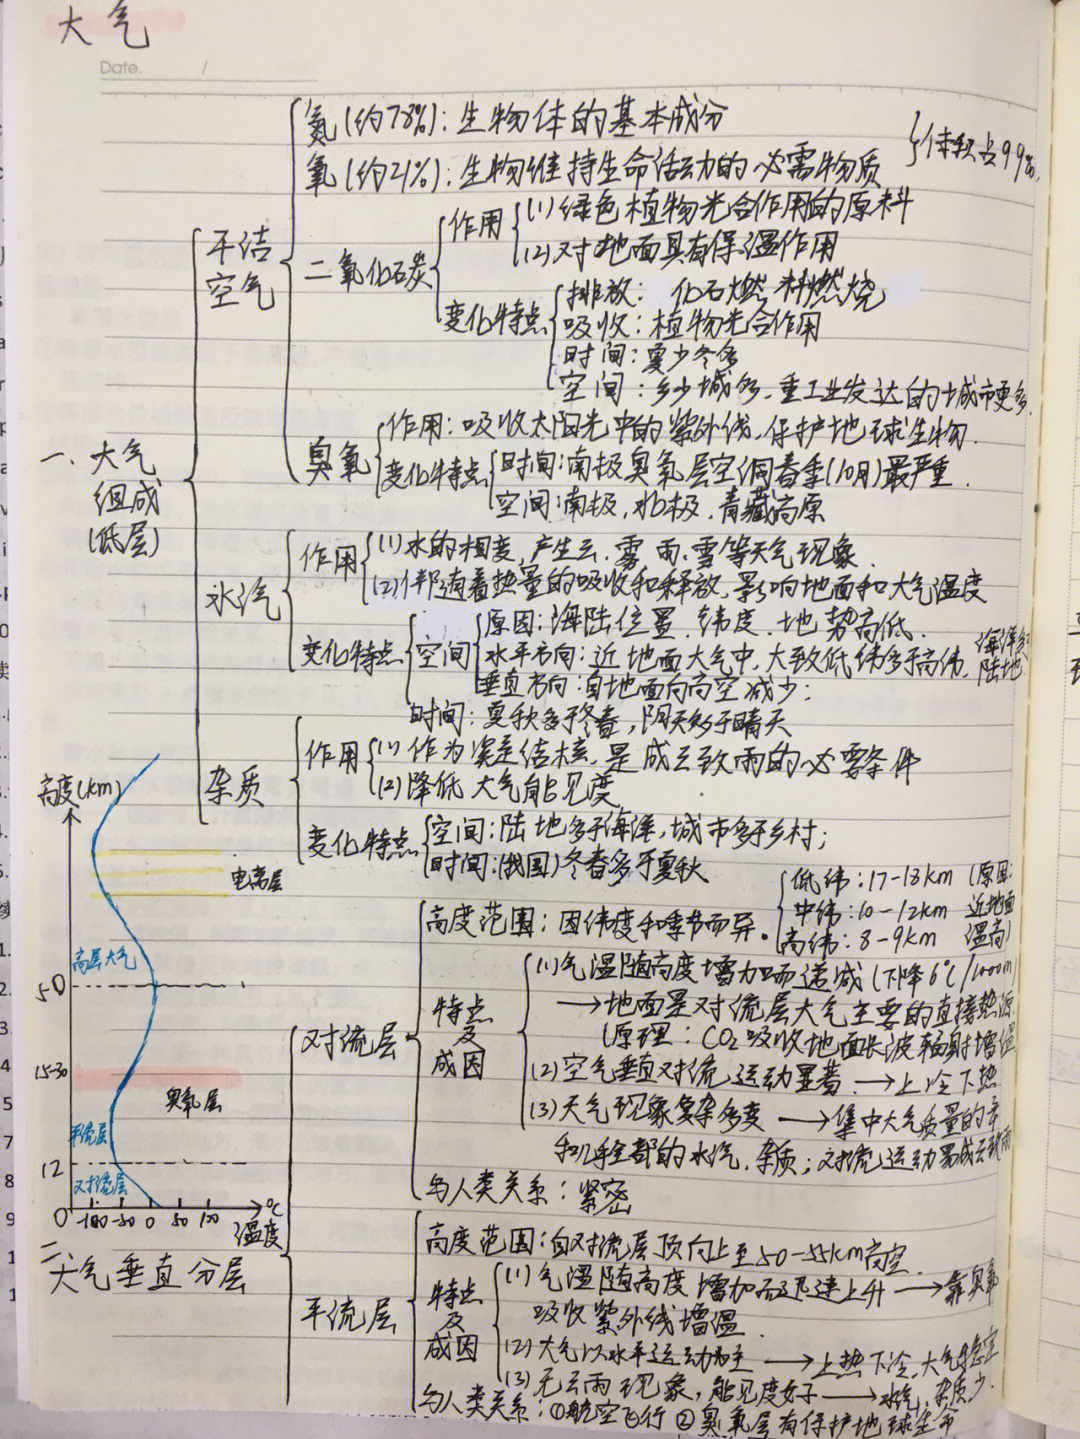 大气
Date. /
氮(约78%):生物体的基本成分
氧(约21%):生物维持生命活动的必需物质
}体积占99%.
干洁空气
二氧化碳
作用
(1)绿色植物光合作用的原料
(2)对地面具有保温作用
变化特点
排放:化石燃料燃烧
吸收:植物光合作用
时间:夏少冬多
空间:乡少城多,重工业发达的城市更多.
臭氧
作用:吸收太阳光中的紫外线,保护地球生物.
变化特点
时间:南极臭氧层空洞春季(10月)最严重.
空间:南极,北极,青藏高原
一、大气
组成
(低层)
水汽
作用
(1)水的相变,产生云、雾、雨、雪等天气现象.
(2)伴随着热量的吸收和释放,影响地面和大气温度
变化特点
空间
原因:海陆位置、纬度、地势高低.
水平方向:近地面大气中,大致低纬多于高纬,海洋多陆地
垂直方向:自地面向高空减少;
时间:夏秋多于冬春,阴天多于晴天
杂质
作用
(1)作为凝结核,是成云致雨的必要条件
(2)降低大气能见度
变化特点
空间:陆地多于海洋,城市多于乡村;
时间:(我国)冬春多于夏秋
高度(km)
电离层
高层大气
50
15-30
臭氧层
平流层
12
对流层
0 -100 -50 0 50 100 ℃
温度
二、大气垂直分层
对流层
高度范围:因纬度和季节而异.
低纬:17-18km (原因:
中纬:10-12km 近地面
高纬:8-9km 温高)
特点
及
成因
(1)气温随高度增加而递减(下降6℃/1000m)
→地面是对流层大气主要的直接热源
(原理:CO₂吸收地面长波辐射增温
(2)空气垂直对流运动显著 →上冷下热
(3)天气现象复杂多变 →集中大气质量的¾
和几乎全部的水汽、杂质;对流运动易成云致雨
与人类关系:紧密
平流层
高度范围:自对流层顶向上至50-55km高空.
特点
及
成因
(1)气温随高度增加而迅速上升 →靠臭氧
吸收紫外线增温.
(2)大气以水平运动为主 →上热下冷,大气稳定
(3)无云雨现象,能见度好 →水汽、杂质少.
与人类关系:①航空飞行 ②臭氧层有保护地球生命